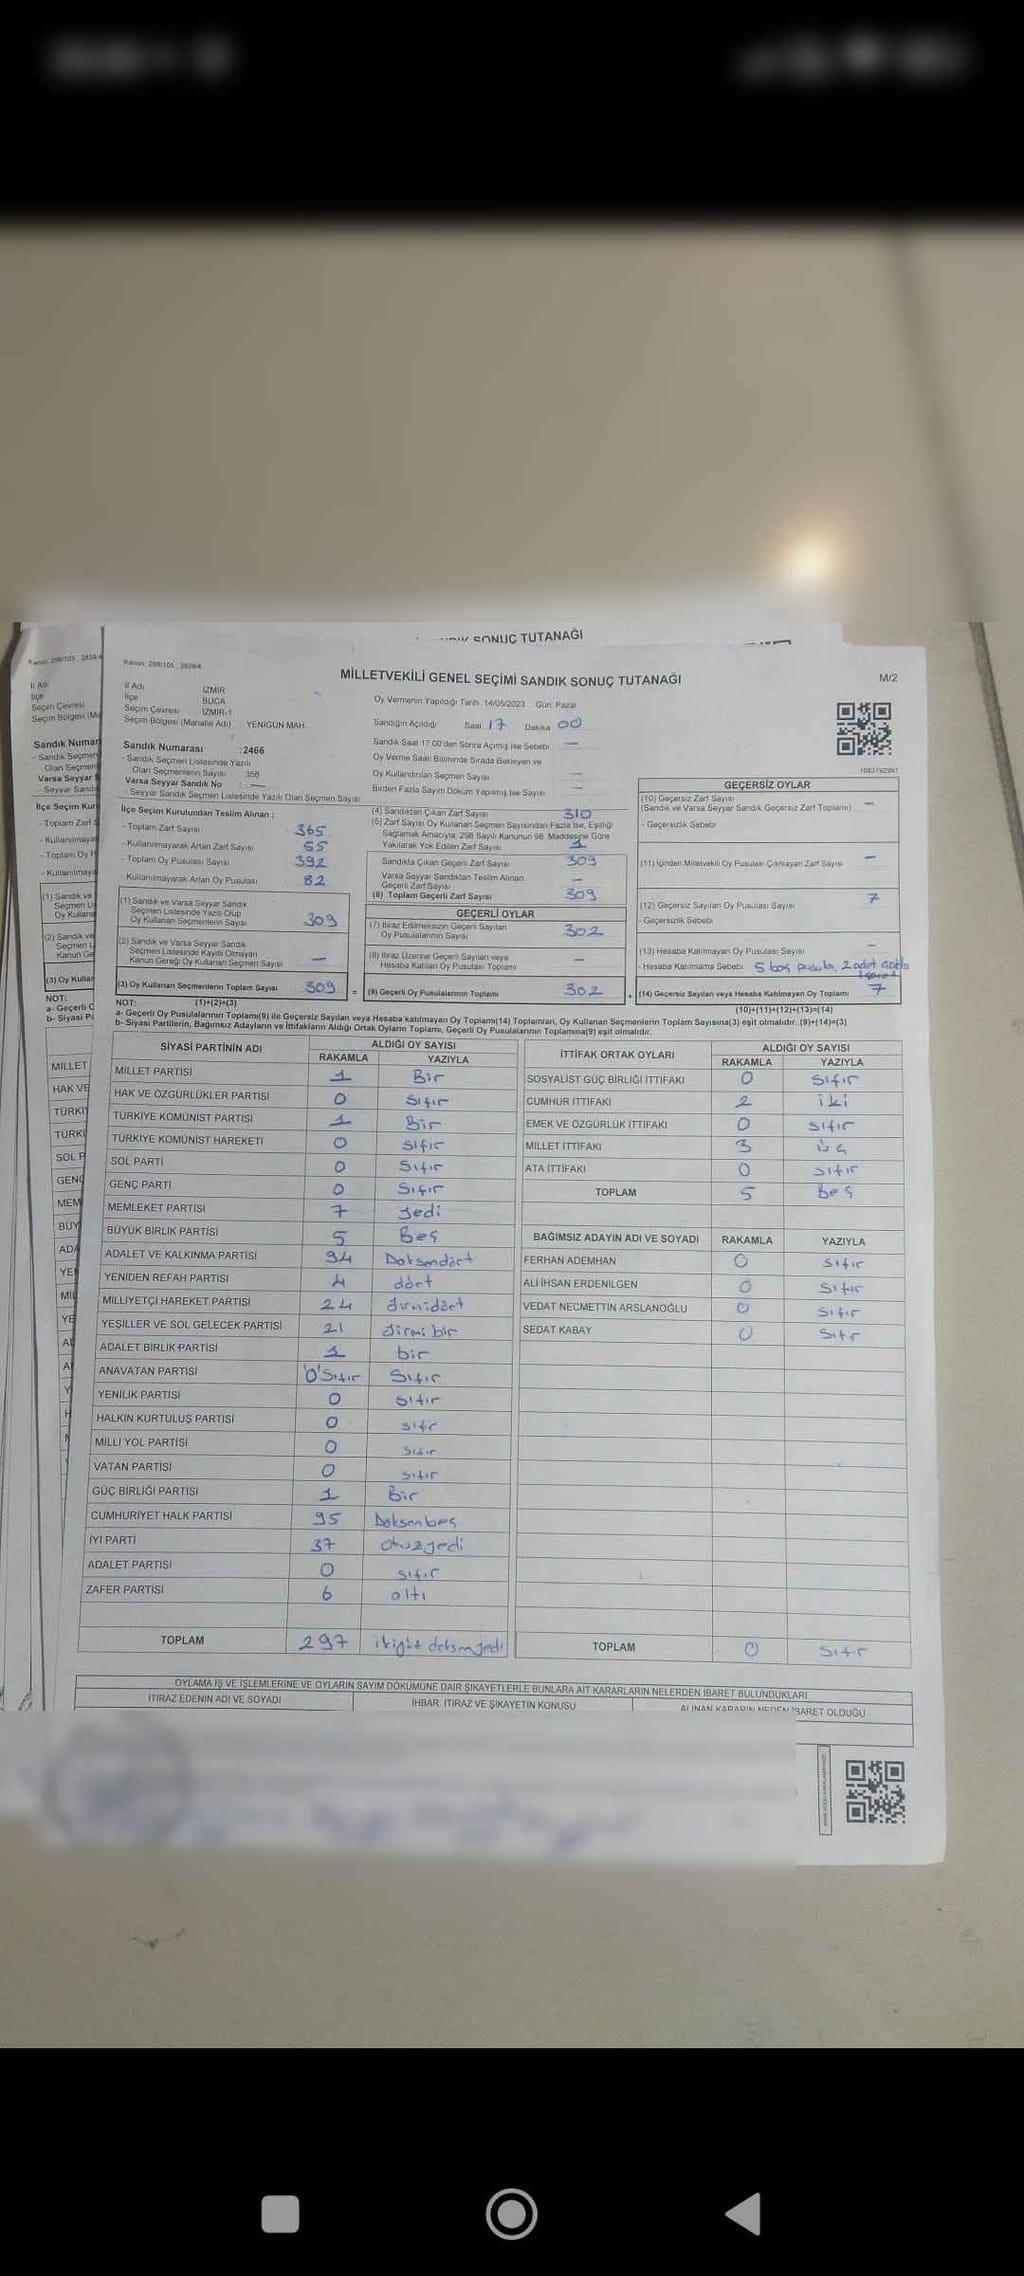 SONUÇ TUTANAĞI
Kanun: 298/105 ; 2839/4
M/2
MİLLETVEKİLİ GENEL SEÇİMİ SANDIK SONUÇ TUTANAĞI
İl Adı İZMİR
İlçe BUCA
Seçim Çevresi İZMİR-1
Seçim Bölgesi (Mahalle Adı) YENİGÜN MAH.
Sandık Numarası :2466
- Sandık Seçmen Listesinde Yazılı
Olan Seçmenlerin Sayısı 358
Varsa Seyyar Sandık No : —
- Seyyar Sandık Seçmen Listesinde Yazılı Olan Seçmen Sayısı
Oy Vermenin Yapıldığı Tarih: 14/05/2023 Gün: Pazar
Sandığın Açıldığı Saat 17 Dakika 00
Sandık Saat 17.00'den Sonra Açılmış İse Sebebi —
Oy Verme Saati Bitiminde Sırada Bekleyen ve
Oy Kullandırılan Seçmen Sayısı —
Birden Fazla Sayım Döküm Yapılmış İse Sayısı —
İlçe Seçim Kurulundan Teslim Alınan ;
- Toplam Zarf Sayısı 365
- Kullanılmayarak Artan Zarf Sayısı 55
- Toplam Oy Pusulası Sayısı 392
- Kullanılmayarak Artan Oy Pusulası 82
(1) Sandık ve Varsa Seyyar Sandık
Seçmen Listesinde Yazılı Olup
Oy Kullanan Seçmenlerin Sayısı 309
(2) Sandık ve Varsa Seyyar Sandık
Seçmen Listesinde Kayıtlı Olmayan
Kanun Gereği Oy Kullanan Seçmen Sayısı —
(3) Oy Kullanan Seçmenlerin Toplam Sayısı 309
(4) Sandıktan Çıkan Zarf Sayısı 310
(5) Zarf Sayısı Oy Kullanan Seçmen Sayısından Fazla İse, Eşitliği
Sağlamak Amacıyla, 298 Sayılı Kanunun 98. Maddesine Göre
Yakılarak Yok Edilen Zarf Sayısı 1
Sandıkta Çıkan Geçerli Zarf Sayısı 309
Varsa Seyyar Sandıktan Teslim Alınan
Geçerli Zarf Sayısı —
(6) Toplam Geçerli Zarf Sayısı 309
GEÇERLİ OYLAR
(7) İtiraz Edilmeksizin Geçerli Sayılan
Oy Pusulalarının Sayısı 302
(8) İtiraz Üzerine Geçerli Sayılan veya
Hesaba Katılan Oy Pusulası Toplamı —
= (9) Geçerli Oy Pusulalarının Toplamı 302
GEÇERSİZ OYLAR
(10) Geçersiz Zarf Sayısı
(Sandık ve Varsa Seyyar Sandık Geçersiz Zarf Toplamı) —
- Geçersizlik Sebebi
(11) İçinden Milletvekili Oy Pusulası Çıkmayan Zarf Sayısı —
(12) Geçersiz Sayılan Oy Pusulası Sayısı 7
- Geçersizlik Sebebi
(13) Hesaba Katılmayan Oy Pusulası Sayısı —
- Hesaba Katılmama Sebebi 5 boş pusula, 2 adet
+ (14) Geçersiz Sayılan veya Hesaba Katılmayan Oy Toplamı 7
NOT: (1)+(2)=(3) (10)+(11)+(12)+(13)=(14)
a- Geçerli Oy Pusulalarının Toplamı(9) ile Geçersiz Sayılan veya Hesaba katılmayan Oy Toplamı(14) Toplamları, Oy Kullanan Seçmenlerin Toplam Sayısına(3) eşit olmalıdır. (9)+(14)=(3)
b- Siyasi Partilerin, Bağımsız Adayların ve İttifakların Aldığı Ortak Oyların Toplamı, Geçerli Oy Pusulalarının Toplamına(9) eşit olmalıdır.
SİYASİ PARTİNİN ADI ALDIĞI OY SAYISI
RAKAMLA YAZIYLA
MİLLET PARTİSİ 1 Bir
HAK VE ÖZGÜRLÜKLER PARTİSİ 0 Sıfır
TÜRKİYE KOMÜNİST PARTİSİ 1 Bir
TÜRKİYE KOMÜNİST HAREKETİ 0 sıfır
SOL PARTİ 0 Sıfır
GENÇ PARTİ 0 Sıfır
MEMLEKET PARTİSİ 7 yedi
BÜYÜK BİRLİK PARTİSİ 5 Beş
ADALET VE KALKINMA PARTİSİ 94 Doksandört
YENİDEN REFAH PARTİSİ 4 dört
MİLLİYETÇİ HAREKET PARTİSİ 24 yirmidört
YEŞİLLER VE SOL GELECEK PARTİSİ 21 yirmi bir
ADALET BİRLİK PARTİSİ 1 bir
ANAVATAN PARTİSİ '0'Sıfır Sıfır
YENİLİK PARTİSİ 0 sıfır
HALKIN KURTULUŞ PARTİSİ 0 sıfır
MİLLİ YOL PARTİSİ 0 sıfır
VATAN PARTİSİ 0 sıfır
GÜÇ BİRLİĞİ PARTİSİ 1 Bir
CUMHURİYET HALK PARTİSİ 95 Doksanbeş
İYİ PARTİ 37 otuzyedi
ADALET PARTİSİ 0 sıfır
ZAFER PARTİSİ 6 altı
TOPLAM 297 ikiyüz doksanyedi
İTTİFAK ORTAK OYLARI ALDIĞI OY SAYISI
RAKAMLA YAZIYLA
SOSYALİST GÜÇ BİRLİĞİ İTTİFAKI 0 sıfır
CUMHUR İTTİFAKI 2 iki
EMEK VE ÖZGÜRLÜK İTTİFAKI 0 sıfır
MİLLET İTTİFAKI 3 üç
ATA İTTİFAKI 0 sıfır
TOPLAM 5 Beş
BAĞIMSIZ ADAYIN ADI VE SOYADI RAKAMLA YAZIYLA
FERHAN ADEMHAN 0 sıfır
ALİ İHSAN ERDENİLGEN 0 sıfır
VEDAT NECMETTİN ARSLANOĞLU 0 sıfır
SEDAT KABAY 0 sıfır
TOPLAM 0 sıfır
OYLAMA İŞ VE İŞLEMLERİNE VE OYLARIN SAYIM DÖKÜMÜNE DAİR ŞİKAYETLERLE BUNLARA AİT KARARLARIN NELERDEN İBARET BULUNDUKLARI
İTİRAZ EDENİN ADI VE SOYADI İHBAR, İTİRAZ VE ŞİKAYETİN KONUSU ALINAN KARARIN NEDEN İBARET OLDUĞU